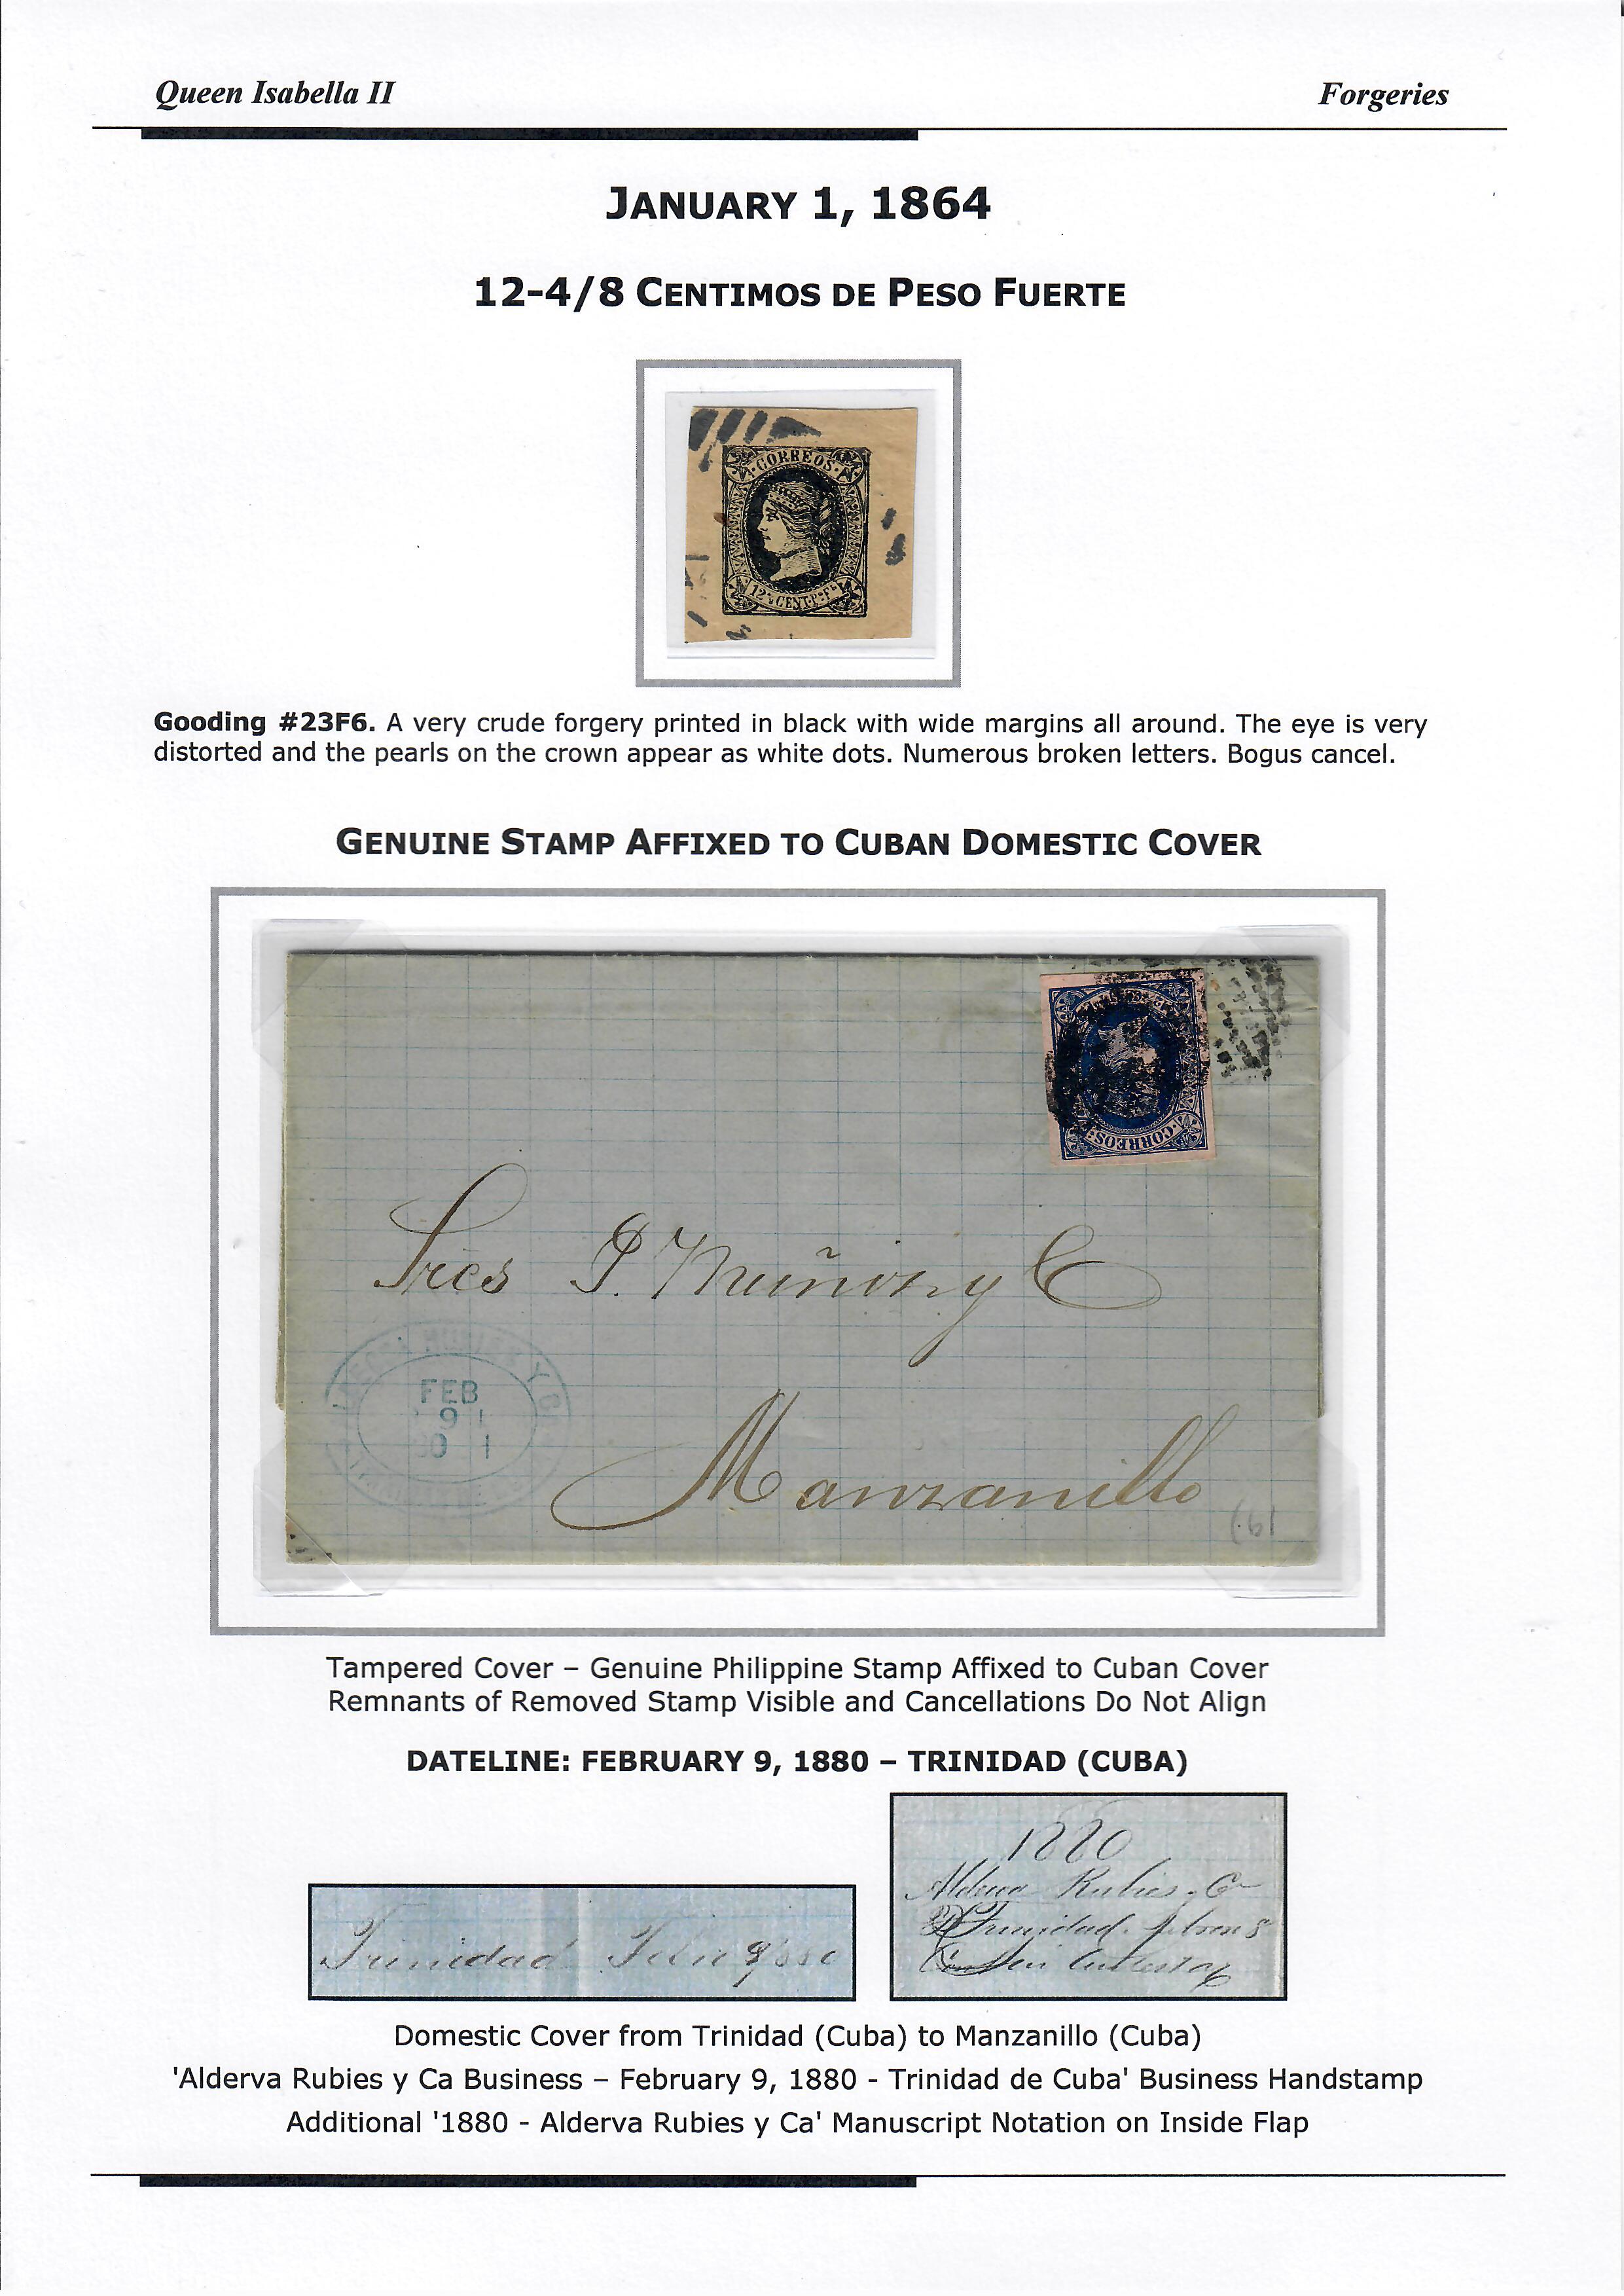 Queen Isabella II
Forgeries
JANUARY 1, 1864
12-4/8 CENTIMOS DE PESO FUERTE
CORREOS
12 4/8 CENT. P. F.
Gooding #23F6. A very crude forgery printed in black with wide margins all around. The eye is very
distorted and the pearls on the crown appear as white dots. Numerous broken letters. Bogus cancel.
GENUINE STAMP AFFIXED TO CUBAN DOMESTIC COVER
CORREOS
Sres P. Muñoz y C
FEB
9
Manzanillo
Tampered Cover – Genuine Philippine Stamp Affixed to Cuban Cover
Remnants of Removed Stamp Visible and Cancellations Do Not Align
DATELINE: FEBRUARY 9, 1880 – TRINIDAD (CUBA)
1880
Rubies
Trinidad
Trinidad
Domestic Cover from Trinidad (Cuba) to Manzanillo (Cuba)
'Alderva Rubies y Ca Business – February 9, 1880 - Trinidad de Cuba' Business Handstamp
Additional '1880 - Alderva Rubies y Ca' Manuscript Notation on Inside Flap